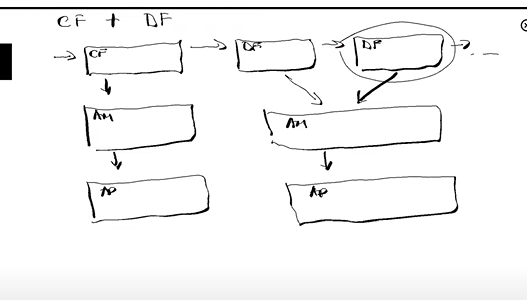 CF + DF
CF DF DF
AM AM
AP AP